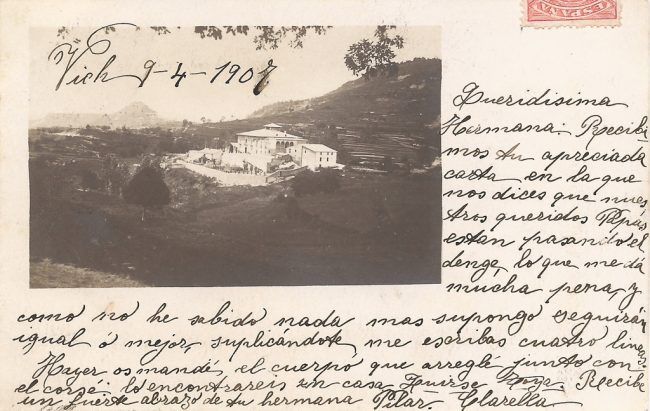 ESPAÑA
Vich 9-4-1907
Queridisima
Hermana: Recibi-
mos tu apreciada
carta en la que
nos dices que nues
tros queridos Papás
estan pasando el
denge, lo que me dá
mucha pena, y
como no he sabido nada mas supongo seguirán
igual ó mejor, suplicándote, me escribas cuatro lineas.
Hayer os mandé, el cuerpó que arreglé junto con
el corsé. lo encontrareis en casa Recibe
un fuerte abrazo de tu hermana Pilar. Clarella